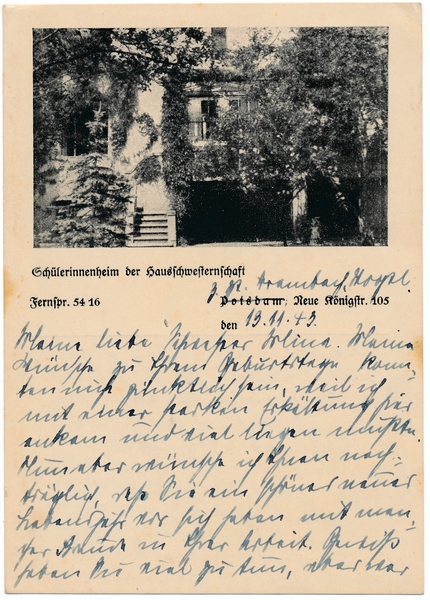 Schülerinnenheim der Hausschwesternschaft
z. Zt. Arambach, Vogtl.
Fernspr. 54 16 Potsdam, Neue Königstr. 105
den 13.11.43
Meine liebe Schwester Meine
Wünsche zu Ihrem Geburtstage konn-
ten nicht pünktlich sein, weil ich
mit einer starken Erkältung hier
ankam und viel liegen musste.
Nun aber wünsche ich Ihnen nach-
träglich, daß Sie ein schönes neues
Lebensjahr vor sich haben mit man-
cher Freude in Ihrer Arbeit. Gewiß
haben Sie viel zu tun, aber